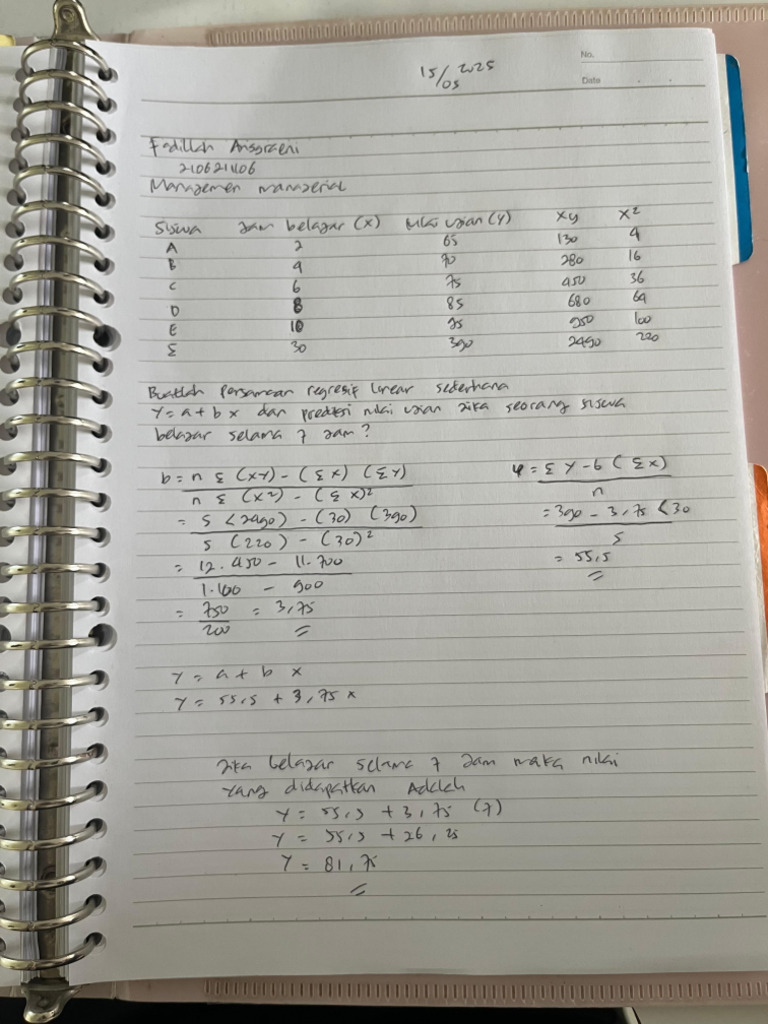 No.
15/05 2025
Date
Fadillah Anggraeni
Manajemen manajerial
Siswa Jam belajar (X) Nilai ujian (Y) XY X²
A 2 65 130 4
B 4 70 280 16
C 6 75 450 36
D 8 85 680 64
E 10 95 950 100
Σ 30 390 2490 220
Buatlah Persamaan regresif linear sederhana
Y = a + b x dan prediksi nilai ujian jika seorang siswa
belajar selama 7 jam?
b = n Σ (XY) - (Σ X) (ΣY)
n Σ (X²) - (Σ X)²
= 5 (2490) - (30) (390)
5 (220) - (30)²
= 12.450 - 11.700
1.100 - 900
= 750 = 3,75
200
a = Σ Y - b (Σ X)
n
= 390 - 3,75 (30
5
= 55,5
Y = a + b x
Y = 55,5 + 3,75 x
Jika belajar selama 7 Jam maka nilai
yang didapatkan Adalah
Y = 55,5 + 3,75 (7)
Y = 55,5 + 26,25
Y = 81,75